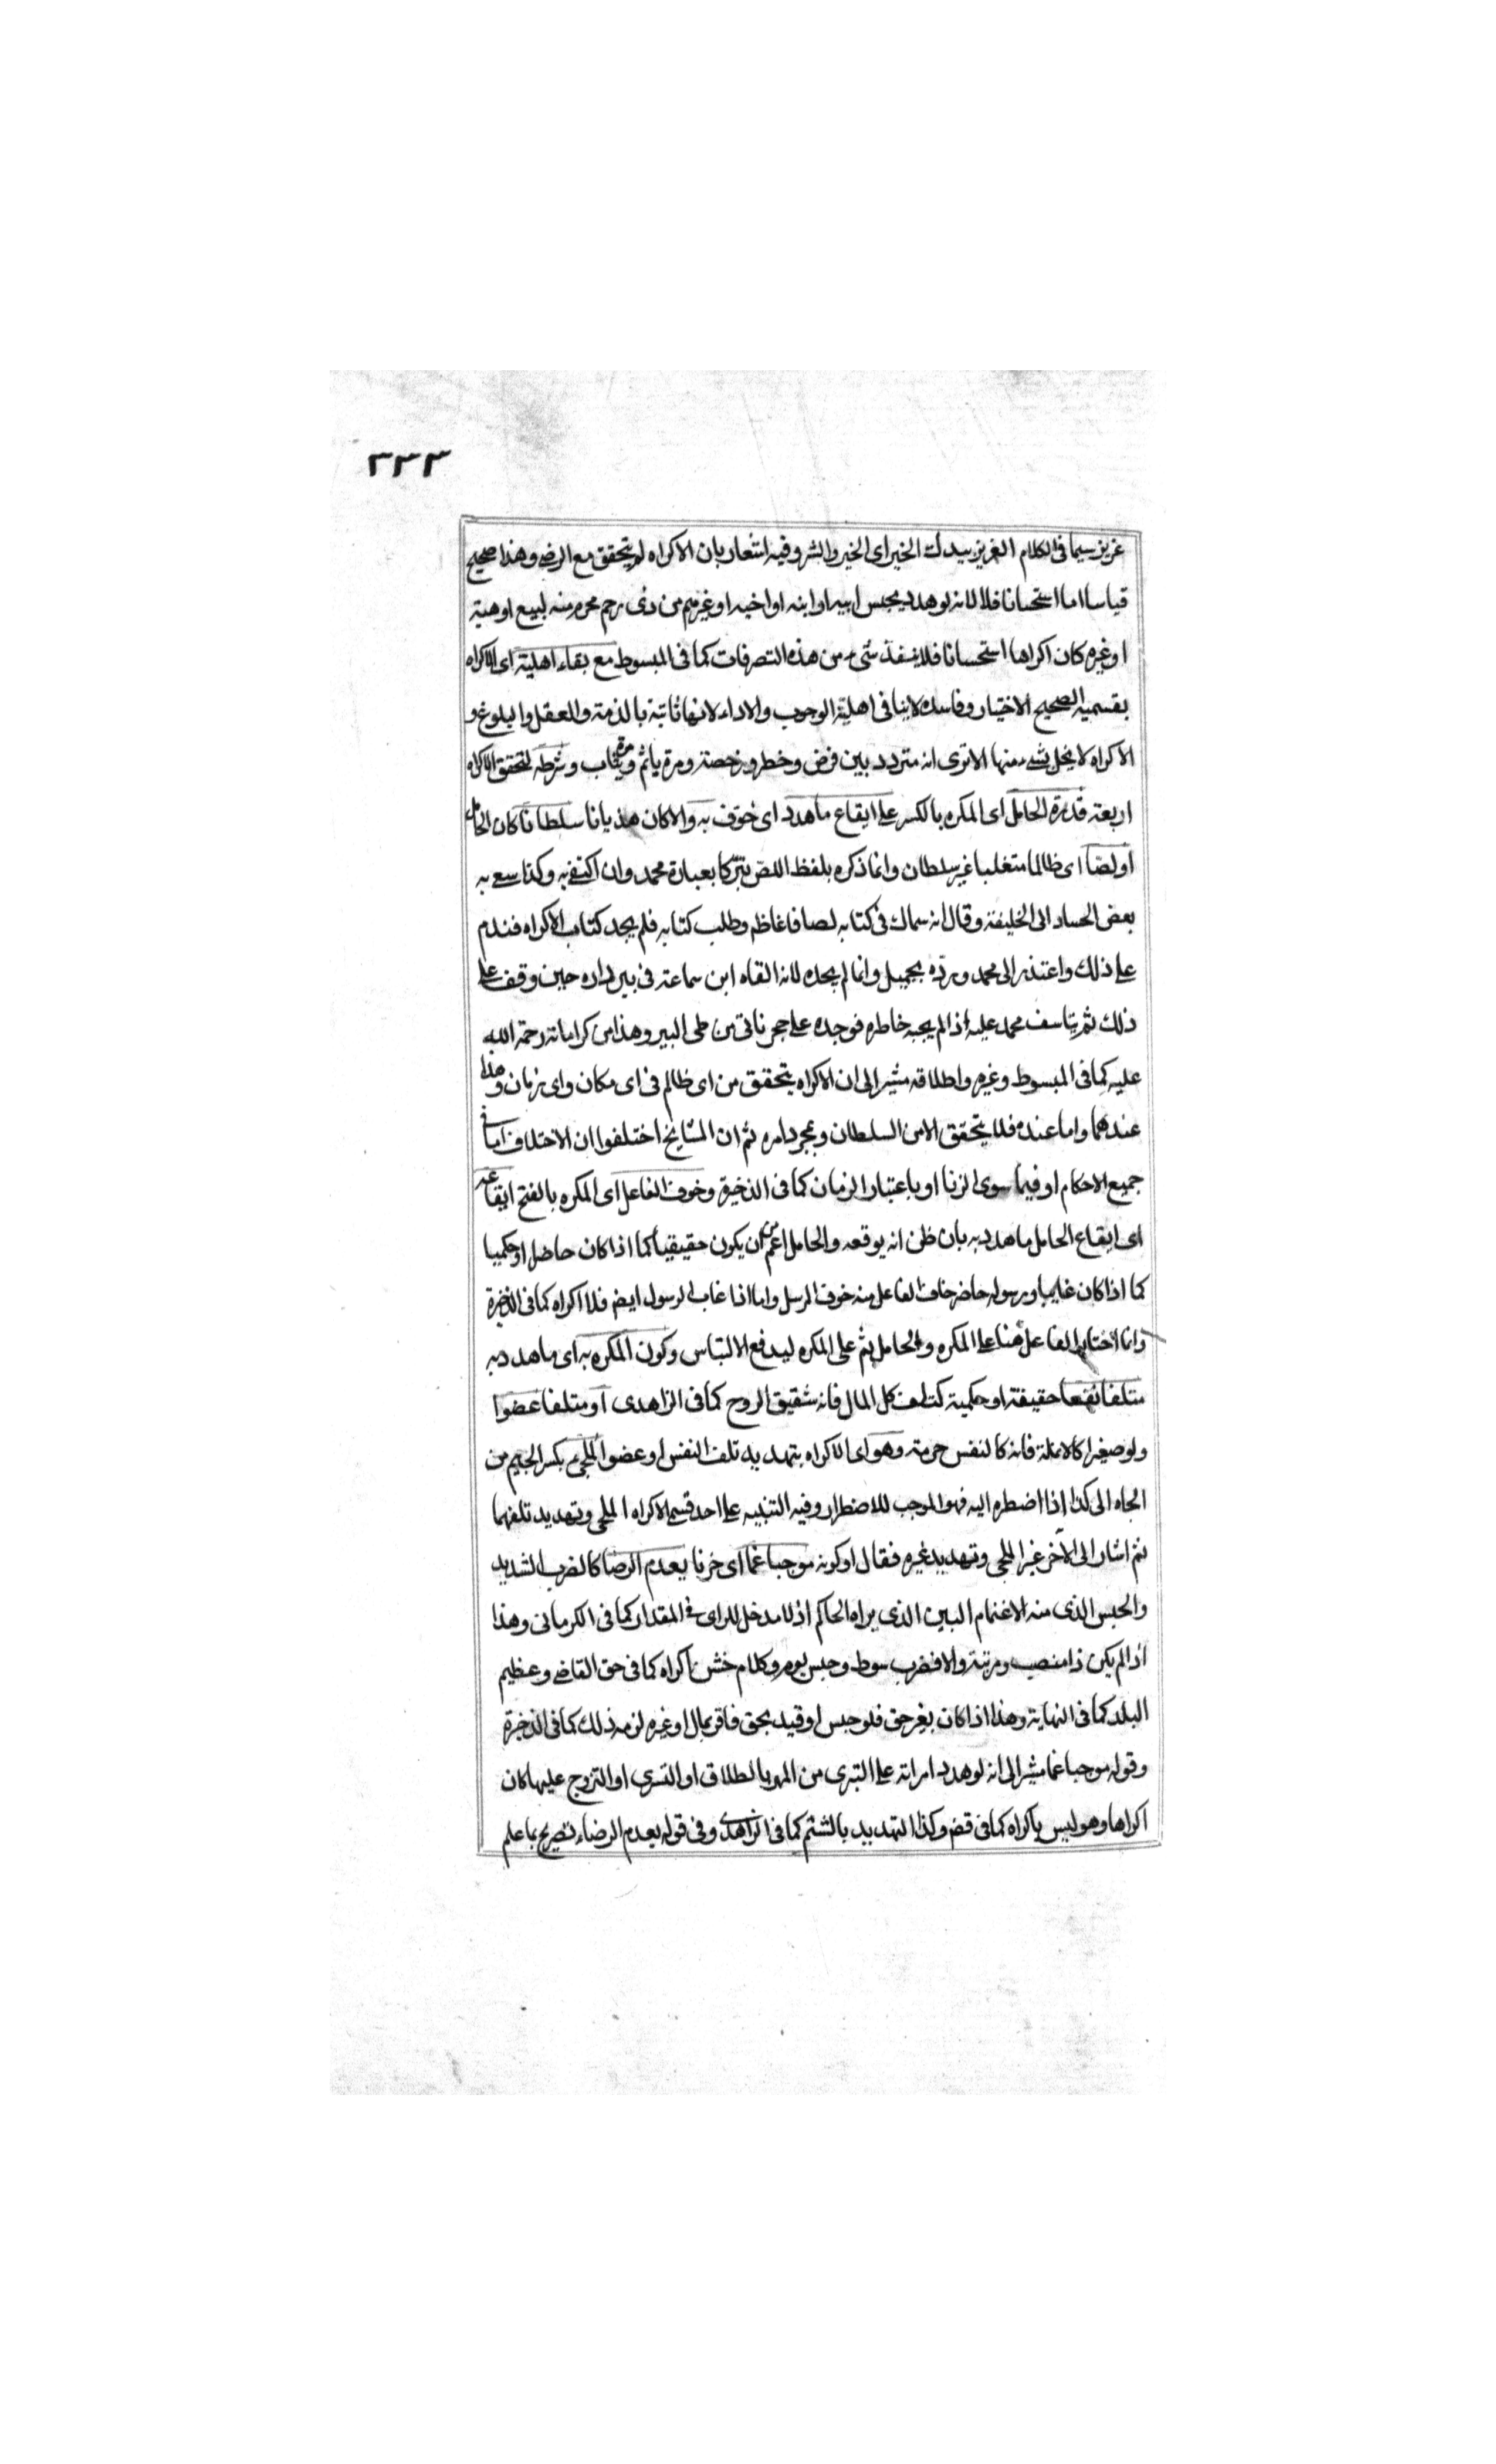 ٢٣٣
عزيز سيما فى الكلام العزيز بيدك الخير اى الخير والشر وفيه اشعار بان الاكراه لم يتحقق مع الرضى وهذا صحيح
قياسا اما استحسانا فلا لانه لو هدد بحبس ابيه او ابنه او اخيه او غيرهم من ذى رحم محرم منه لبيع او هبة
او غيره كان اكراها استحسانا فلا ينفذ شىء من هذه التصرفات كما فى المبسوط مع بقاء اهلية اى الاكراه
بقسميه الصحيح الاختيار وفاسده لا ينافى اهلية الوجوب والاداء لانها ثابتة بالذمة والعقل والبلوغ و
الاكراه لا يخل بشىء منها الا ترى انه متردد بين فرض وحظر ورخصة ومرة يأثم ومرة يثاب وشرطه لتحقق الاكراه
اربعة قدرة الحامل اى المكره بالكسر على ايقاع ما هدد اى خوف به والا كان هذيانا سلطانا كان الحامل
او لصا اى ظالما متغلبا غير سلطان وانما ذكره بلفظ اللص تبركا بعبارة محمد وان اكتفى به وكذا سعى به
بعض الحساد الى الخليفة وقال انه سماك فى كتابه لصا فاغاظه وطلب كتابه فلم يجد كتاب الاكراه فندم
على ذلك واعتذر الى محمد ورده بجميل وانما لم يجده لانه القاه ابن سماعة فى بير داره حين وقف على
ذلك ثم يتاسف محمد عليه اذا لم يجبه خاطره فوجده على حجر ناتى من طى البير وهذا من كراماته رحمة الله
عليه كما فى المبسوط وغيره واطلاقه مشير الى ان الاكراه يتحقق من اى ظالم فى اى مكان واى زمان وهذا
عندهما واما عنده فلا يتحقق الا من السلطان وبمجرد امره ثم ان المشايخ اختلفوا ان الاختلاف اما فى
جميع الاحكام او فيما سوى الزنا او باعتبار الزمان كما فى الذخيرة وخوف الفاعل اى المكره بالفتح ايقاعه
اى ايقاع الحامل ما هدد به بان ظن انه يوقعه والحامل اعم من ان يكون حقيقيا كما اذا كان حاضرا او حكميا
كما اذا كان غايبا ورسوله حاضر خاف الفاعل منه خوف المرسل واما اذا غاب الرسول ايضا فلا اكراه كما فى الذخيرة
وانما اختار الفاعل هنا على المكره والحامل ثم على المكره ليدفع الالتباس وكون المكره به اى ما هدد به
متلفا نفسا حقيقة او حكمية كتلف كل المال فانه شقيق الروح كما فى الزاهدى او متلفا عضوا
ولو صغيرا كالانملة فانه كالنفس حرمة وهو اى الاكراه بتهديد تلف النفس او عضو الملجىء بكسر الجيم من
الجاه الى كذا اذا اضطره اليه فهو الموجب للاضطرار وفيه التنبيه على احد قسمى الاكراه الملجى وتهديد تلفهما
ثم اشار الى الآخر غير الملجى وتهديد غيره فقال او كونه موجبا غما اى حزنا يعدم الرضا كالضرب الشديد
والحبس الذى منه الاغتمام البين الذى يراه الحاكم اذ لا مدخل للراى فى المقدار كما فى الكرمانى وهذا
اذا لم يكن ذا منصب ومرتبة والا فضرب سوط وحبس يوم وكلام خشن اكراه كما فى حق القاضى وعظيم
البلد كما فى النهاية وهذا اذا كان بغير حق فلو حبس او قيد بحق فاقر بمال او غيره لزمه ذلك كما فى الذخيرة
وقوله موجبا غما مشير الى انه لو هدد امراته على التبرى من المهر بالطلاق او التسرى او التزوج عليها كان
اكراها وهو ليس باكراه كما فى قض وكذا التهديد بالشتم كما فى الزاهدى وفى قوله يعدم الرضاء تصريح بما علم